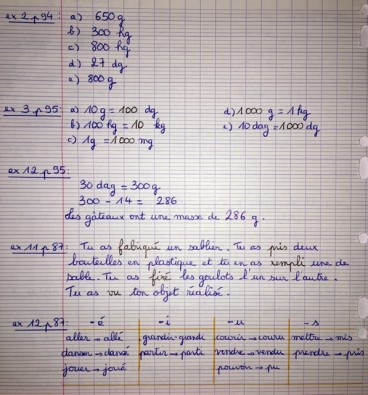 ex 2 p 94 : a) 650 g
b) 300 hg
c) 800 hg
d) 27 dg
e) 800 g
ex 3 p 95 : a) 10 g = 100 dg d) 1000 g = 1 kg
b) 100 hg = 10 kg e) 10 dag = 1000 dg
c) 1g = 1000 mg
ex 12 p 95 :
30 dag = 300 g
300 - 14 = 286
Les gâteaux ont une masse de 286 g.
ex 11 p 87 : Tu as fabriqué un sablier. Tu as pris deux
bouteilles en plastique et tu en as rempli une de
sable. Tu as fixé les goulots l'un sur l'autre.
Tu as vu ton objet réalisé.
ex 12 p 87 : -é -i -u -s
aller → allé grandir → grandi courir → couru mettre → mis
danser → dansé partir → parti vendre → vendu prendre → pris
jouer → joué pouvoir → pu